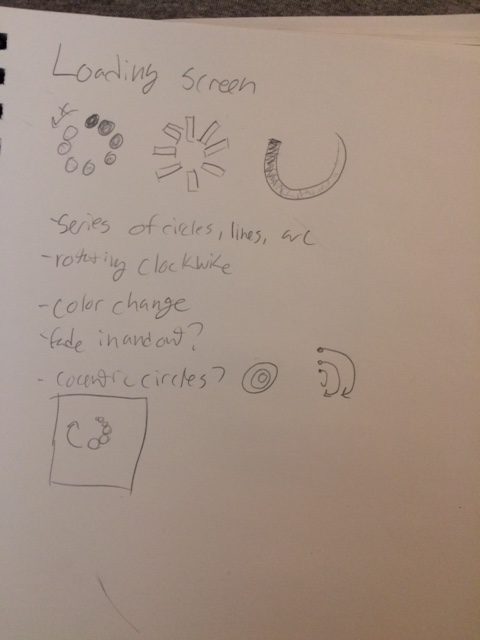 Loading screen
-series of circles, lines, arc
-rotating clockwise
-color change
-fade in and out?
-cocentric circles?